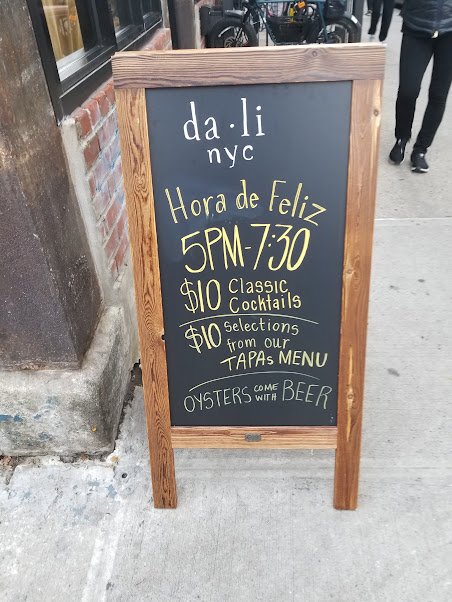 da·li
nyc
Hora de Feliz
5PM-7:30
$10 Classic
Cocktails
$10 Selections
from our
TAPAs MENU
OYSTERS COME WITH BEER